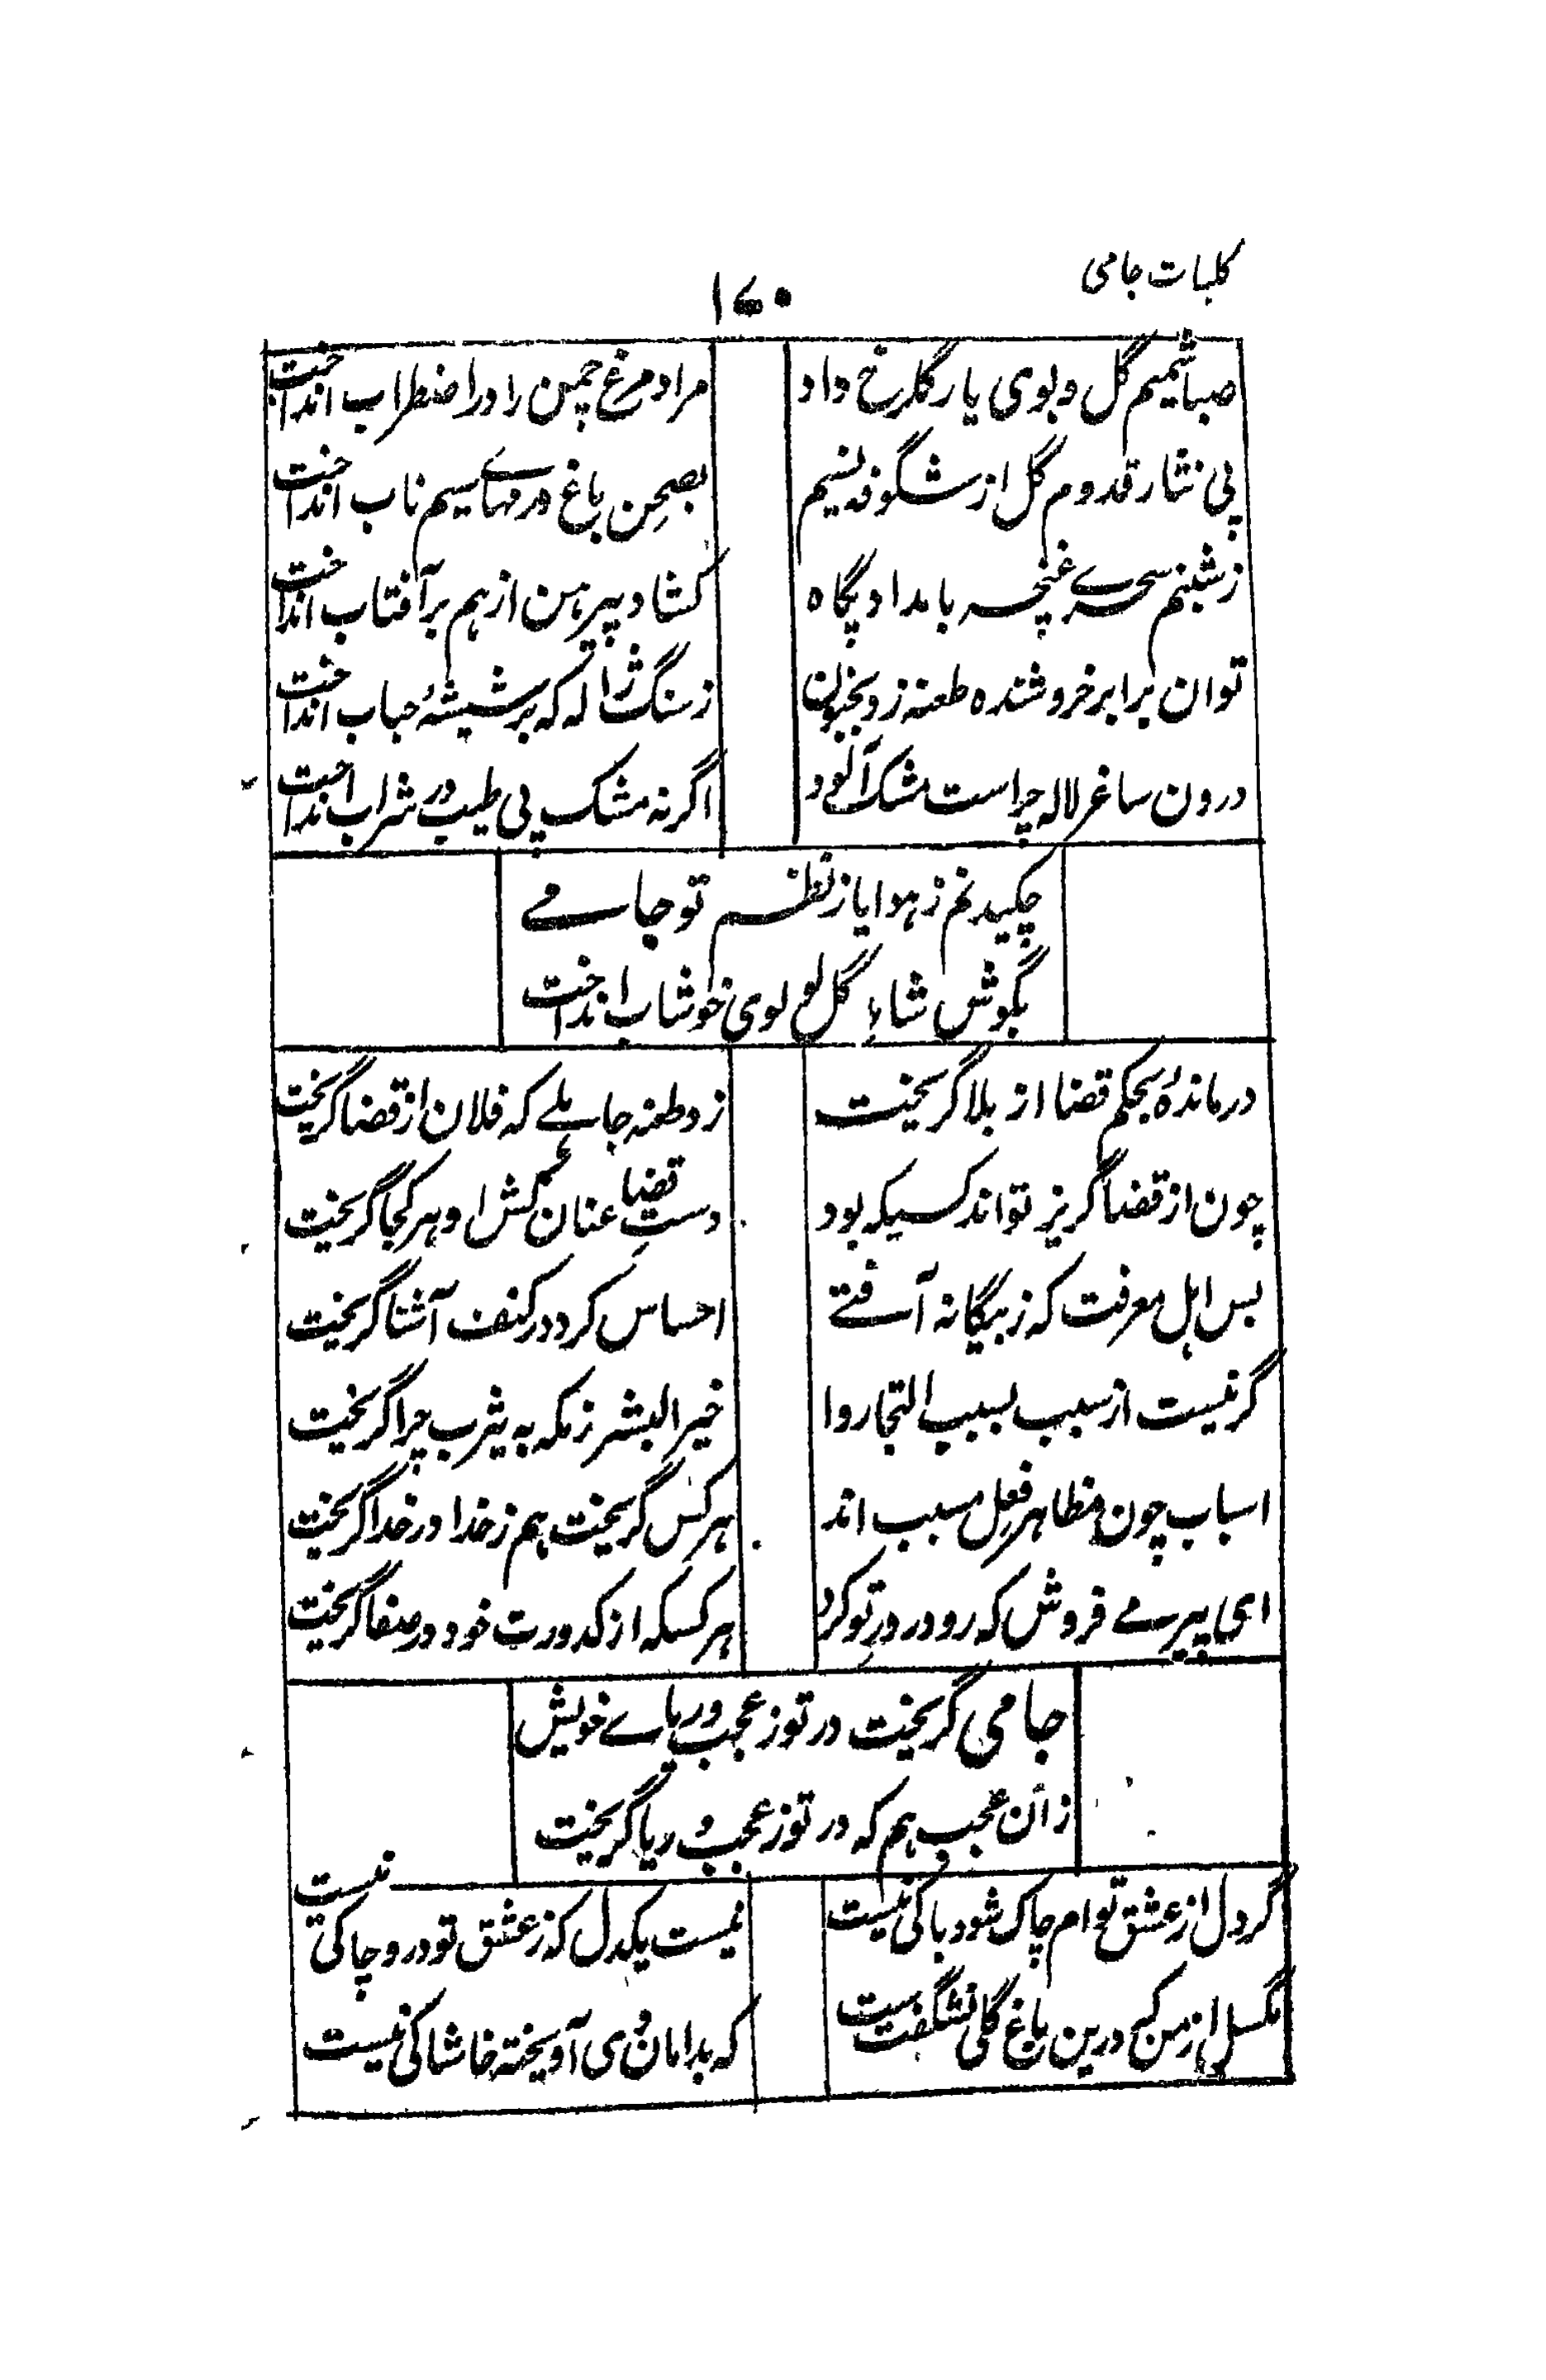 کلیات جامی
۱۷۰
صبا شمیم گل و بوی یار گلرخ داد
مرا و مرغ چمن را در اضطراب انداخت
پی نثار قدوم گل از شگوفه نسیم
بصحن باغ درمهای سیم ناب انداخت
ز شبنم سحری غنچه بامداد پگاه
کشاد پیرهن از هم بر آفتاب انداخت
توان برابر خروشنده طعنه زد بجنون
ز سنگ ژاله که بر شیشهٔ حباب انداخت
درون ساغر لاله چراست مشک آلود
اگر نه مشک پی طیب در شراب انداخت
چکید نم ز هوا یا ز نظم تو جامی
بگوش شاهد گل لولوی خوشاب انداخت
درماندهٔ بحکم قضا از بلا گریخت
زد طعنه جاهلی که فلان از قضا گریخت
چون از قضا گریز تواند کسیکه بود
دست قضا عنان کش او هر کجا گریخت
بس اهل معرفت که ز بیگانه آفتی
احساس کرد در کنف آشنا گریخت
گر نیست از سبب بسبب التجا روا
خیر البشر ز مکه به یثرب چرا گریخت
اسباب چون مظاهر فعل مسبب اند
هر کس گریخت هم ز خدا در خدا گریخت
ای پیر می فروش که رو در در تو کرد
هر کسکه از کدورت خود در صفا گریخت
جامی گریخت در تو ز عجب و ریای خویش
زان عجب هم که در تو ز عجب و ریا گریخت
گر دل از عشق توام چاک شود باکی نیست
نیست یکدل که ز عشق تو درو چاکی نیست
مگسل از من که درین باغ گلی نشگفت ست
که بدامان وی آویخته خاشاکی نیست